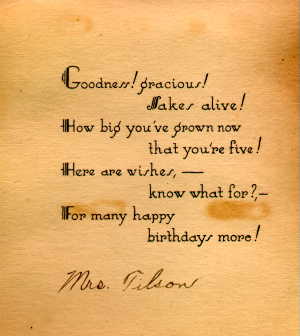 Goodness! gracious!
Sakes alive!
How big you've grown now
that you're five!
Here are wishes, —
know what for?, —
For many happy
birthdays more!
Mrs. Tilson